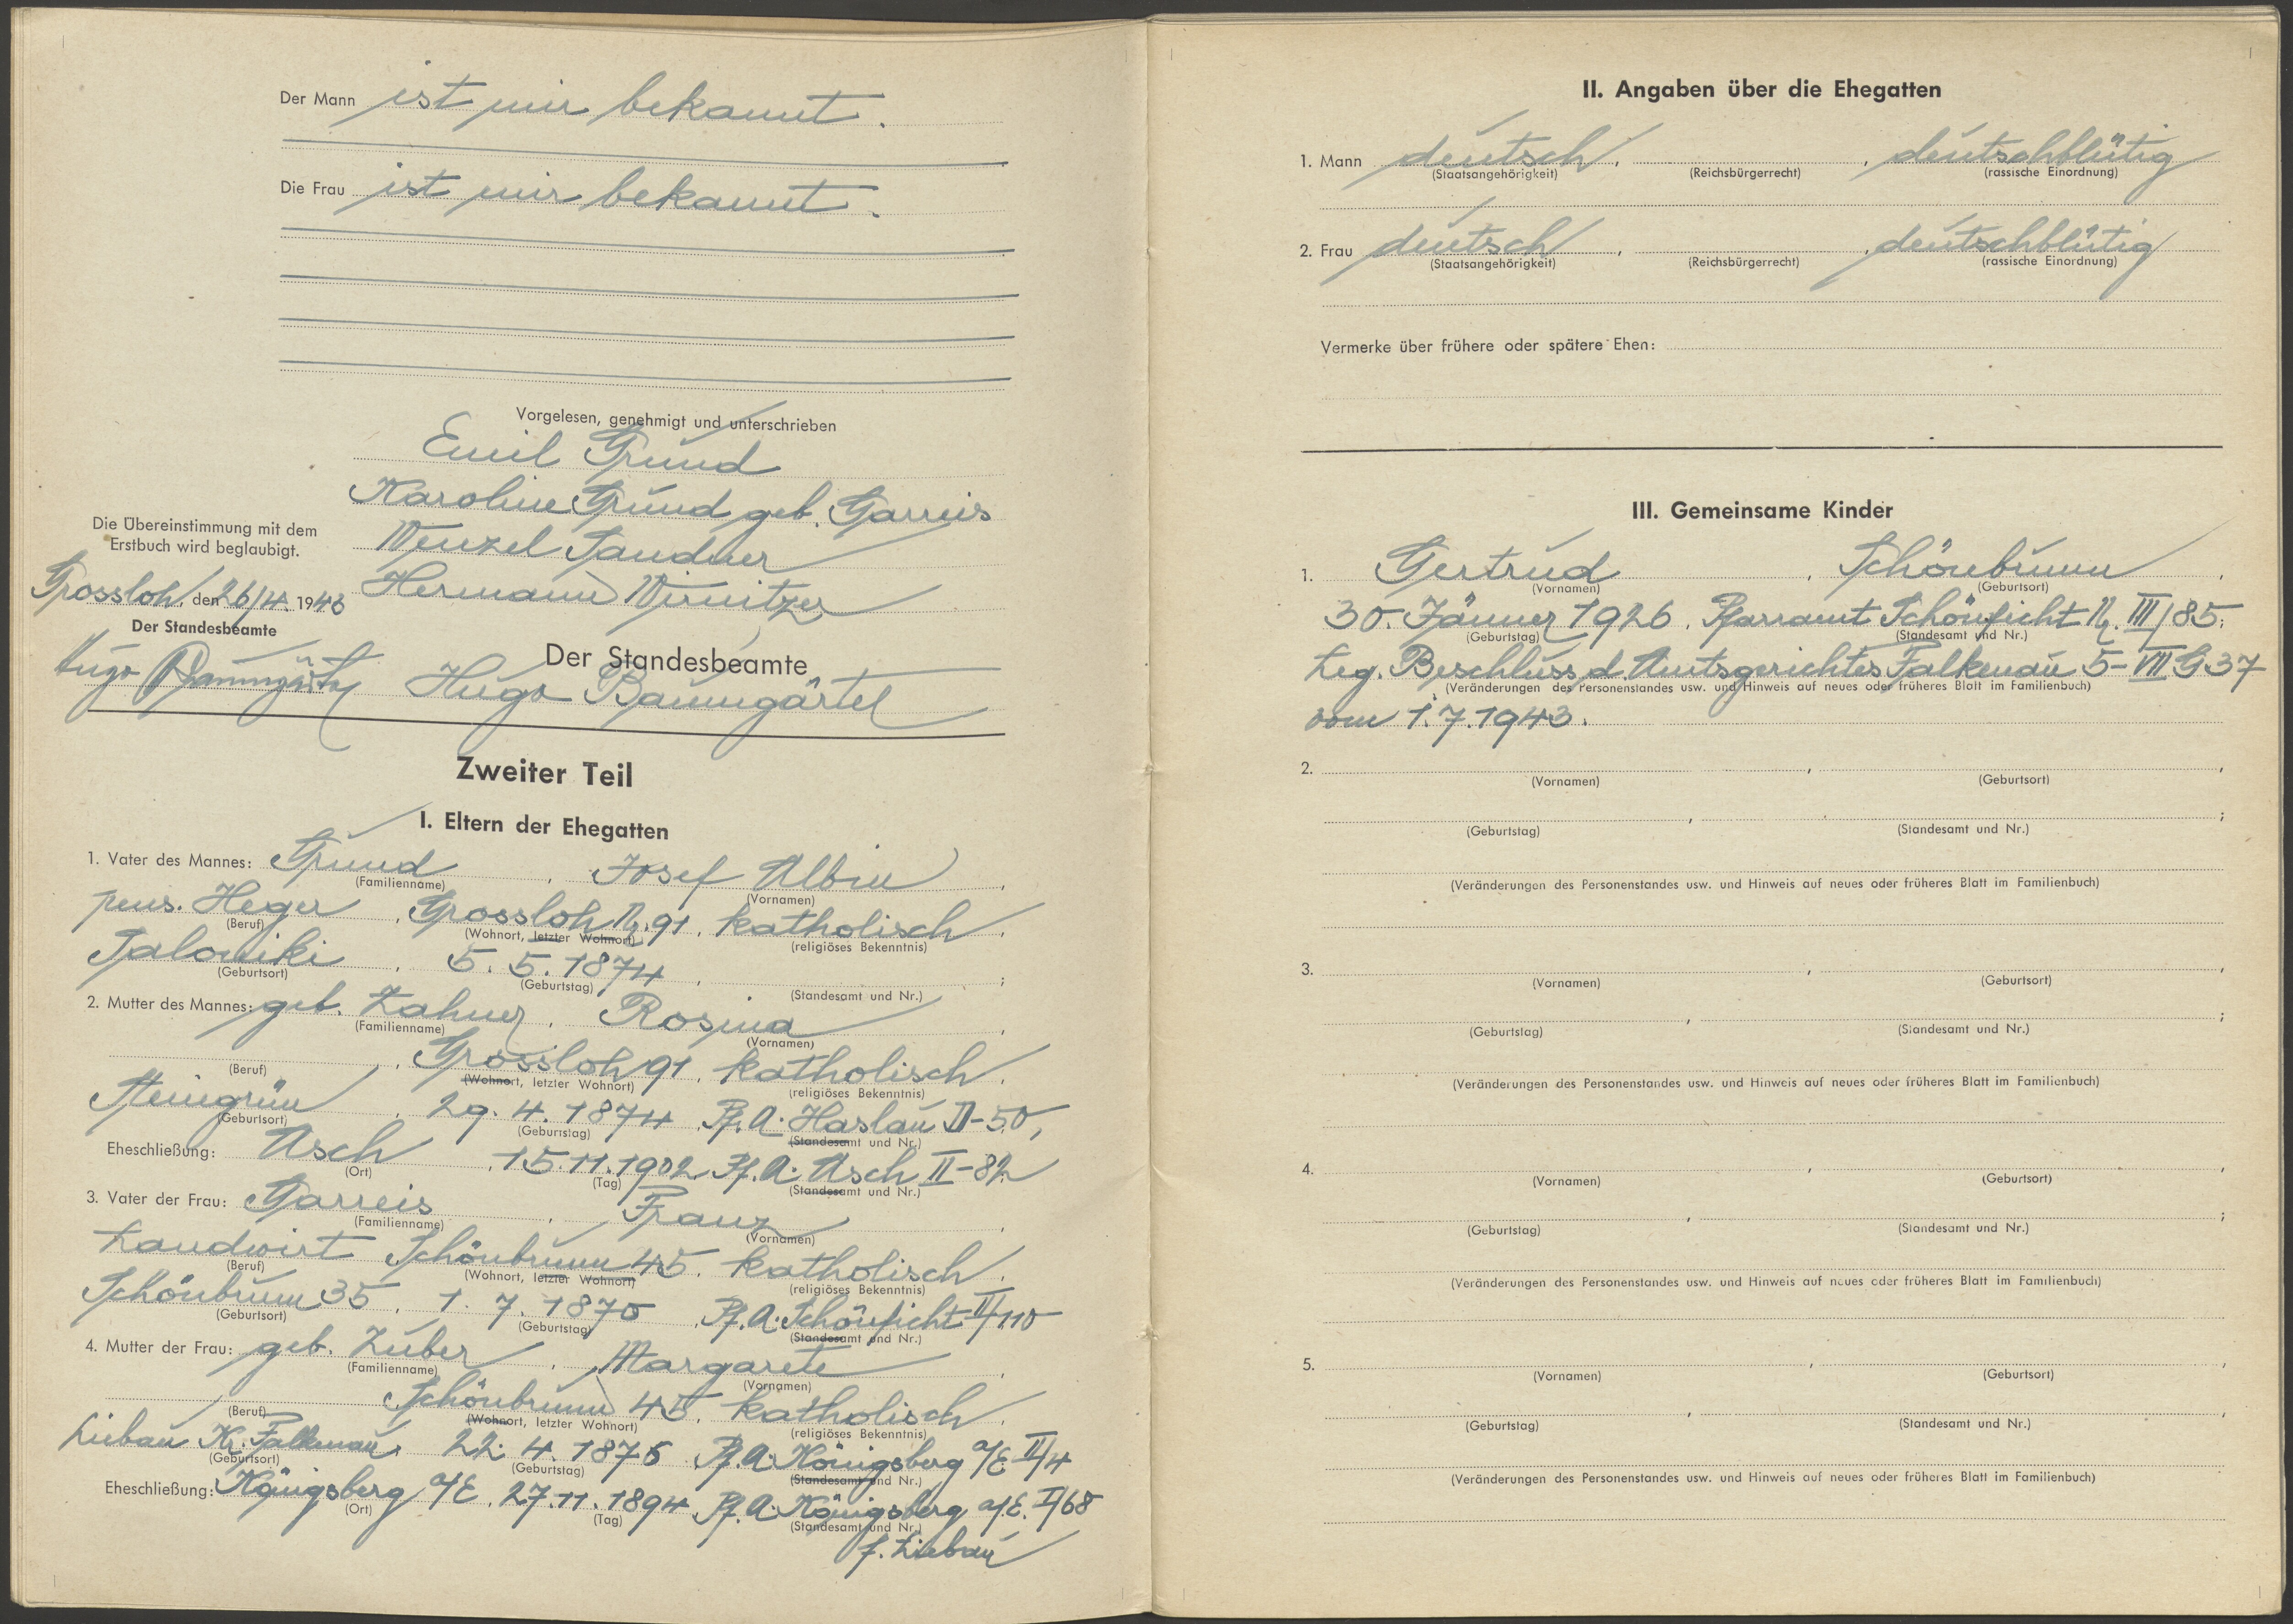 Der Mann ist mir bekannt.
Die Frau ist mir bekannt.
Vorgelesen, genehmigt und unterschrieben
Emil Grund
Karoline Grund geb. Garreis
Wenzel Sandner
Hermann Wirnitzer
Die Übereinstimmung mit dem
Erstbuch wird beglaubigt.
Grossloh, den 26/4. 1943
Der Standesbeamte
Hugo Baumgärtel
Der Standesbeamte
Hugo Baumgärtel
Zweiter Teil
I. Eltern der Ehegatten
1. Vater des Mannes: Grund, Josef Albin,
(Familienname) (Vornamen)
pens. Heger, Grossloh N. 91, katholisch,
(Beruf) (Wohnort, letzter Wohnort) (religiöses Bekenntnis)
Saloniki, 5. 5. 1874, ;
(Geburtsort) (Geburtstag) (Standesamt und Nr.)
2. Mutter des Mannes: geb. Zahner, Rosina,
(Familienname) (Vornamen)
, Grossloh 91, katholisch,
(Beruf) (Wohnort, letzter Wohnort) (religiöses Bekenntnis)
Steingrün, 29. 4. 1874, Pf. A. Haslau II-50,
(Geburtsort) (Geburtstag) (Standesamt und Nr.)
Eheschließung: Asch, 15.11.1902, Pf. A. Asch II-82
(Ort) (Tag) (Standesamt und Nr.)
3. Vater der Frau: Garreis, Franz,
(Familienname) (Vornamen)
Landwirt Schönbrunn 45, katholisch,
(Beruf) (Wohnort, letzter Wohnort) (religiöses Bekenntnis)
Schönbrunn 35, 1. 7. 1870, Pf. A. Schönficht II/110
(Geburtsort) (Geburtstag) (Standesamt und Nr.)
4. Mutter der Frau: geb. Zuber, Margarete,
(Familienname) (Vornamen)
Schönbrunn 45, katholisch,
(Beruf) (Wohnort, letzter Wohnort) (religiöses Bekenntnis)
Liebau Kr. Falkenau, 22. 4. 1876, Pf. A. Königsberg a/E II/4
(Geburtsort) (Geburtstag) (Standesamt und Nr.)
Eheschließung: Königsberg a/E, 27.11.1894, Pf. A. Königsberg a/E. I/68
(Ort) (Tag) (Standesamt und Nr.)
f. Liebau
II. Angaben über die Ehegatten
1. Mann deutsch, , deutschblütig
(Staatsangehörigkeit) (Reichsbürgerrecht) (rassische Einordnung)
2. Frau deutsch, , deutschblütig
(Staatsangehörigkeit) (Reichsbürgerrecht) (rassische Einordnung)
Vermerke über frühere oder spätere Ehen:
III. Gemeinsame Kinder
1. Gertrud, Schönbrunn,
(Vornamen) (Geburtsort)
30. Jänner 1926, Pfarramt Schönficht N. III/85;
(Geburtstag) (Standesamt und Nr.)
Leg. Beschluss d. Amtsgerichtes Falkenau 5-VII G 37
(Veränderungen des Personenstandes usw. und Hinweis auf neues oder früheres Blatt im Familienbuch)
vom 1.7.1943.
2. , ,
(Vornamen) (Geburtsort)
, ;
(Geburtstag) (Standesamt und Nr.)
(Veränderungen des Personenstandes usw. und Hinweis auf neues oder früheres Blatt im Familienbuch)
3. , ,
(Vornamen) (Geburtsort)
, ;
(Geburtstag) (Standesamt und Nr.)
(Veränderungen des Personenstandes usw. und Hinweis auf neues oder früheres Blatt im Familienbuch)
4. , ,
(Vornamen) (Geburtsort)
, ;
(Geburtstag) (Standesamt und Nr.)
(Veränderungen des Personenstandes usw. und Hinweis auf neues oder früheres Blatt im Familienbuch)
5. , ,
(Vornamen) (Geburtsort)
, ,
(Geburtstag) (Standesamt und Nr.)
(Veränderungen des Personenstandes usw. und Hinweis auf neues oder früheres Blatt im Familienbuch)